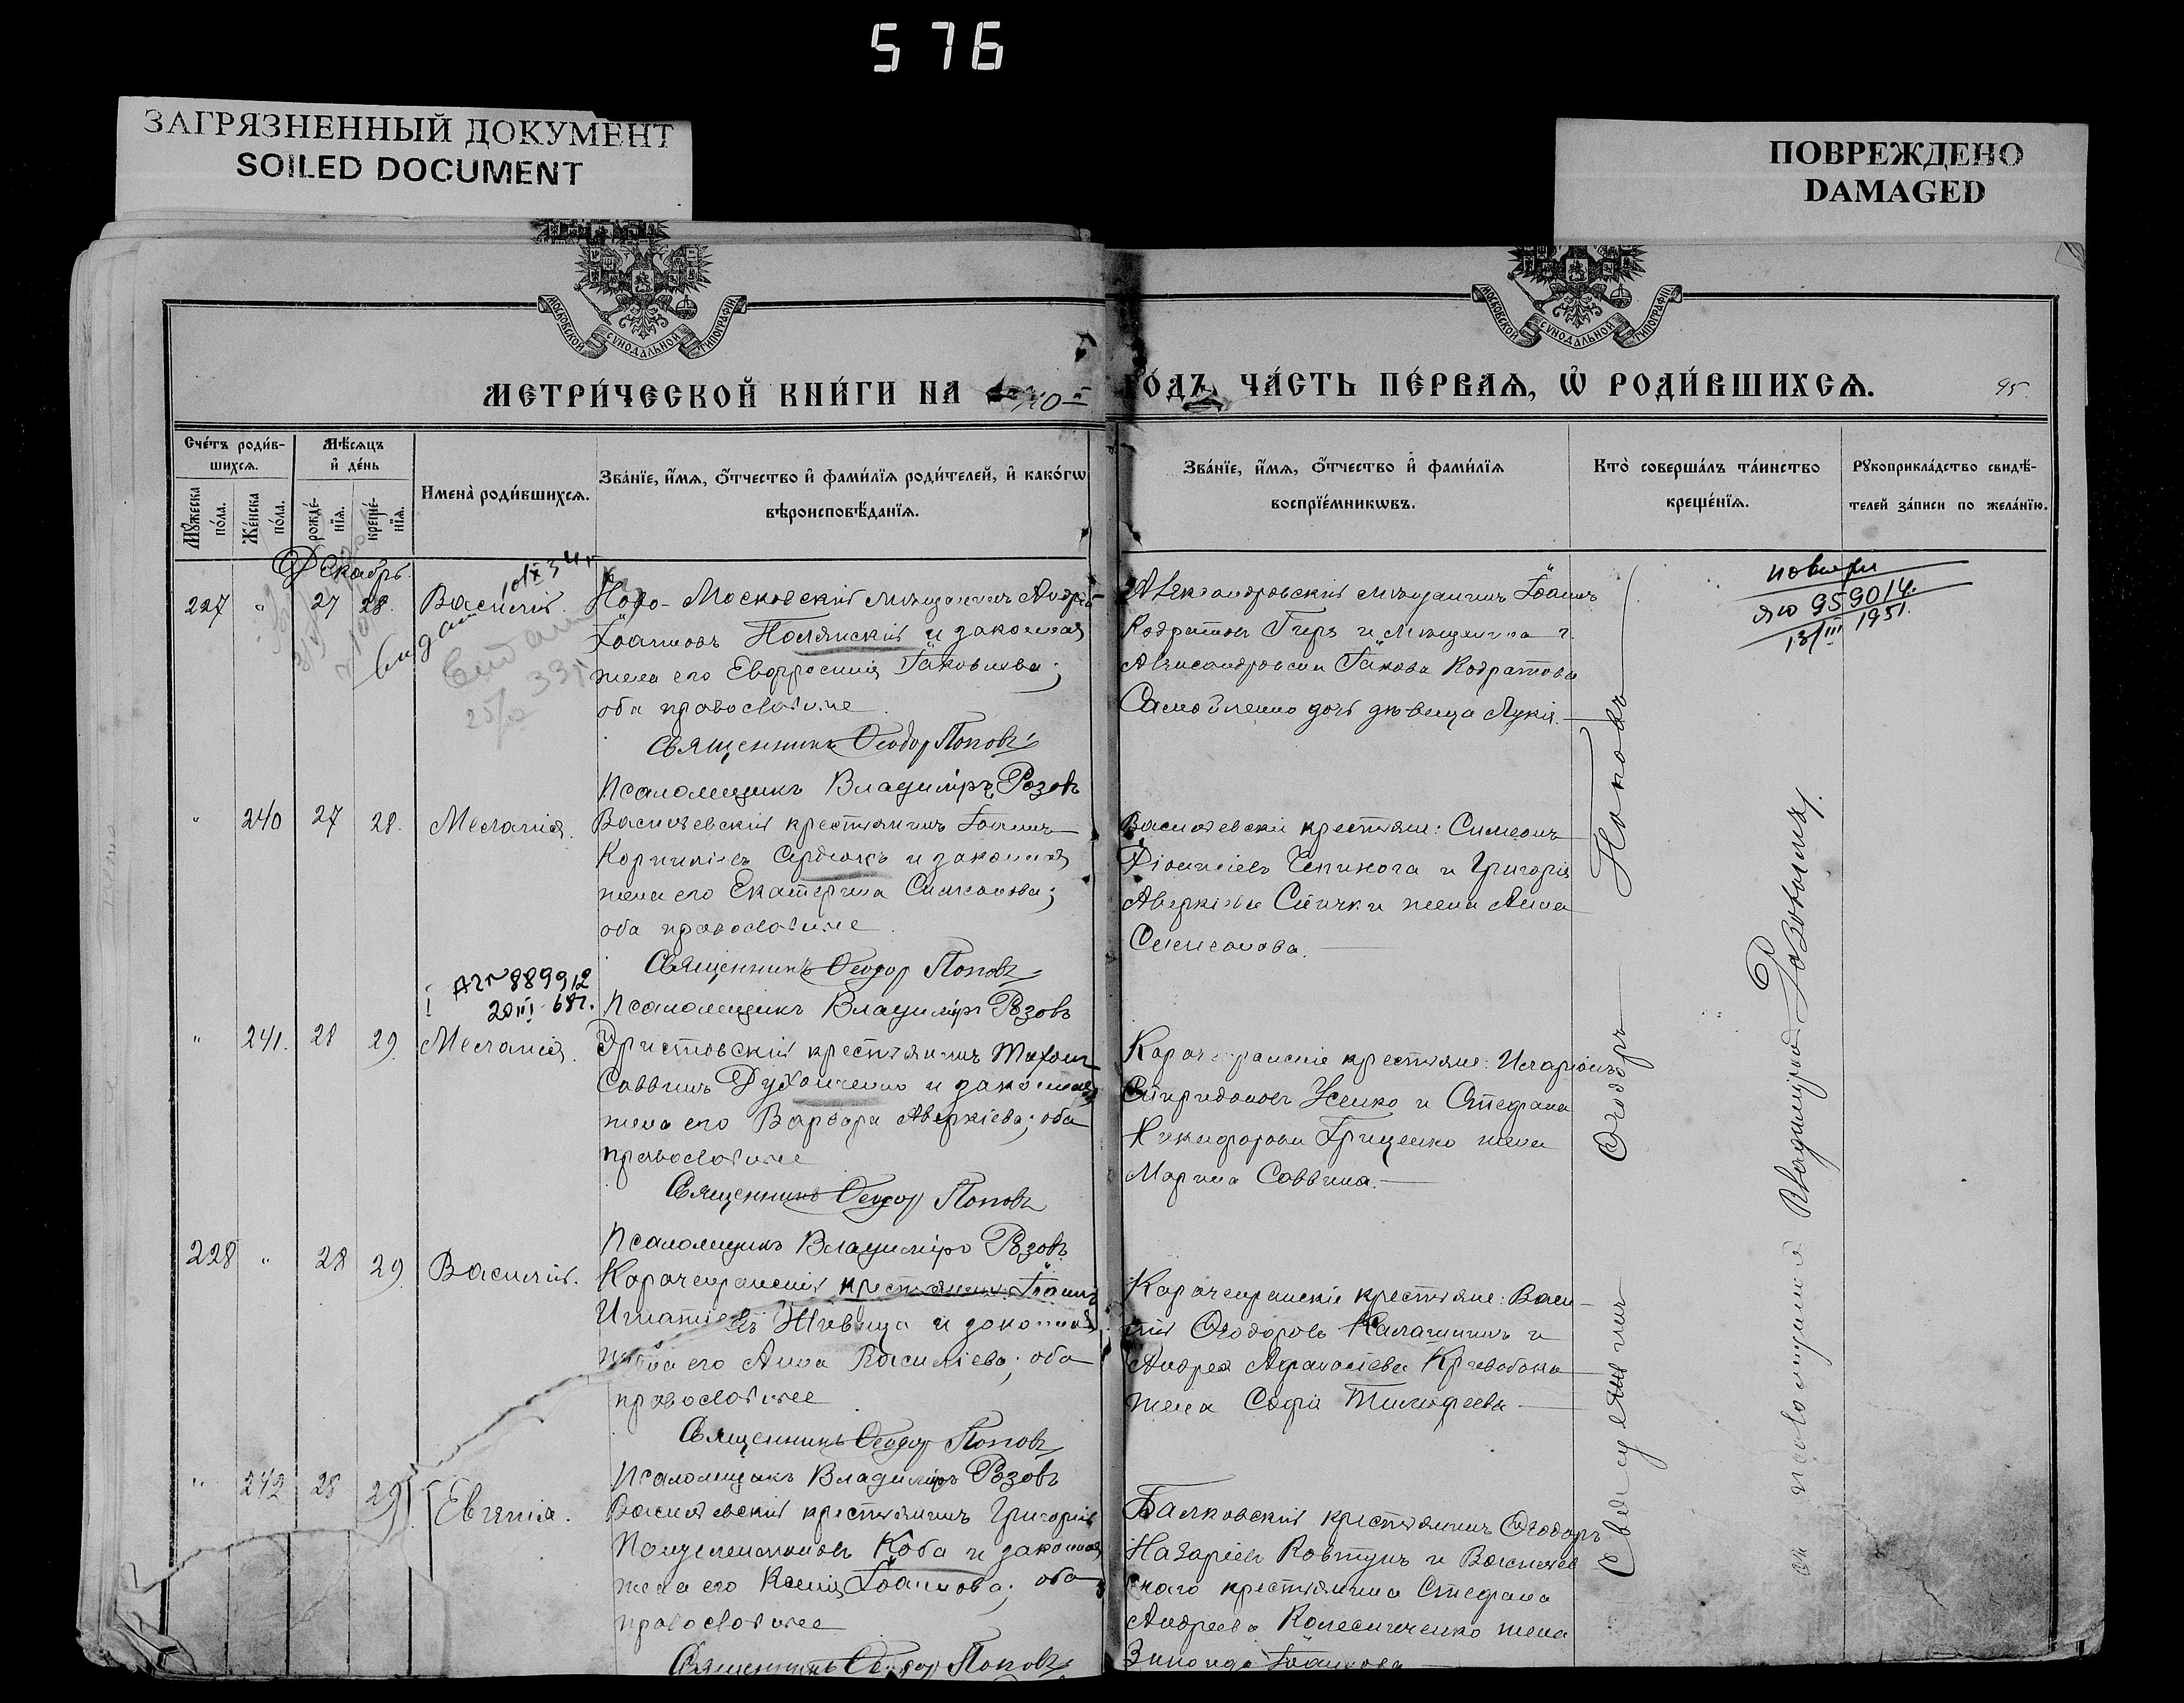 576
ЗАГРЯЗНЕННЫЙ ДОКУМЕНТ
SOILED DOCUMENT
ПОВРЕЖДЕНО
DAMAGED
МОСКОВСКОЙ СУНОДАЛЬНОЙ ТИПОГРАФІИ
МОСКОВСКОЙ СУНОДАЛЬНОЙ ТИПОГРАФІИ
МЕТРИ́ЧЕСКОЙ КНИ́ГИ НА
ГО́ДЪ, ЧА́СТЬ ПЕ́РВАѦ, Ѡ҆ РОДИ́ВШИХСѦ.
95
Сче́тъ роди́в-
шихсѧ.
Мꙋжеска по́ла.
Же́нска по́ла.
Мѣсѧцъ
и҆ де́нь
рожде́-
нїѧ.
креще́-
нїѧ.
Имена̀ роди́вшихсѧ.
Зва́нїе, и҆́мѧ, ѻ҆́тчество и҆ фами́лїѧ роди́телей, и҆ како́гѡ
вѣроисповѣ́данїѧ.
Зва́нїе, и҆́мѧ, ѻ҆́тчество и҆ фами́лїѧ
воспрїе́мникѡвъ.
Кто̀ соверша́лъ та́инство
креще́нїѧ.
Рꙋкоприкла́дство свидѣ́-
телей за́писи по жела́нїю.
Декабрь.
227 " 27 28. Василій.
Ново-Московскій мѣщанинъ Андрей
Іоанновъ Полянскій и законная
жена его Евфросинія Іаковлева;
оба православные
Священникъ Ѳеодор Поповъ
Псаломщикъ Владиміръ Розовъ
Александровскій мѣщанинъ Іоаннъ
Кодратовъ Гирь и мѣщанина г.
Александровска Іакова Кодратова
Самойленко дочь дѣвица Лукія.
повтори
яю 959014.
13/III 1951.
" 240 27 28. Меланія.
Василевскій крестьянинъ Іоаннъ
Корниліевъ Сердюкъ и законная
жена его Екатерина Симеонова;
оба православные
Священникъ Ѳеодор Поповъ
Псаломщикъ Владиміръ Розовъ
Василевскіе крестьяне: Симеонъ
Діонисіевъ Чепинога и Григорія
Аверкіева Спички жена Анна
Симеонова.
889912
20 III 68г.
" 241. 28 29 Меланія.
крестьянинъ
Саввинъ Духонченко и законная
жена его Варвара Аверкіева; оба
православные
Священникъ Ѳеодор Поповъ
Псаломщикъ Владиміръ Розовъ
Карачекракскіе крестьяне: Иларіонъ
Спиридоновъ Усенко и Стефана
Никифорова Гриценко жена
Марина Саввина.
228 " 28 29 Василій.
Карачекракскій крестьянинъ Іоаннъ
Игнатіевъ Живица и законная
жена его Анна Василіева; оба
православные
Священникъ Ѳеодор Поповъ
Псаломщикъ Владиміръ Розовъ
Карачекракскіе крестьяне: Васи-
лій Ѳеодоровъ Калашникъ и
Андрея Афанасіева Кривобока
жена Софія Тимофеева
" 242 28 29 Евгенія.
Василевскій крестьянинъ Григорій
Коба и законная
жена его Ксенія Іоаннова; оба
православные
Священникъ Ѳеодор Поповъ
Балковскій крестьянинъ Ѳеодоръ
Назаріевъ Ковтунъ и Василев
скаго крестьянина Стефана
Андреева Колесниченко жена
Зинаида Іоаннова
Священникъ Ѳеодоръ Поповъ
съ псаломщикомъ Владиміромъ Розовымъ.